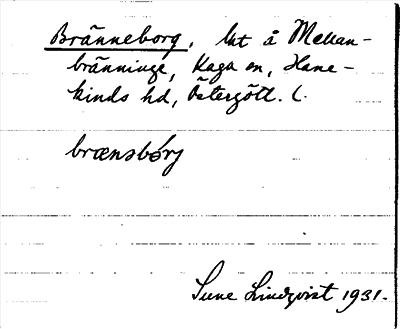 Bränneborg, lht å Mellan-
bränninge, Kaga sn, Hane-
kinds hd, Östergötl. l.
brænsbórj
Sune Lindqvist 1931.